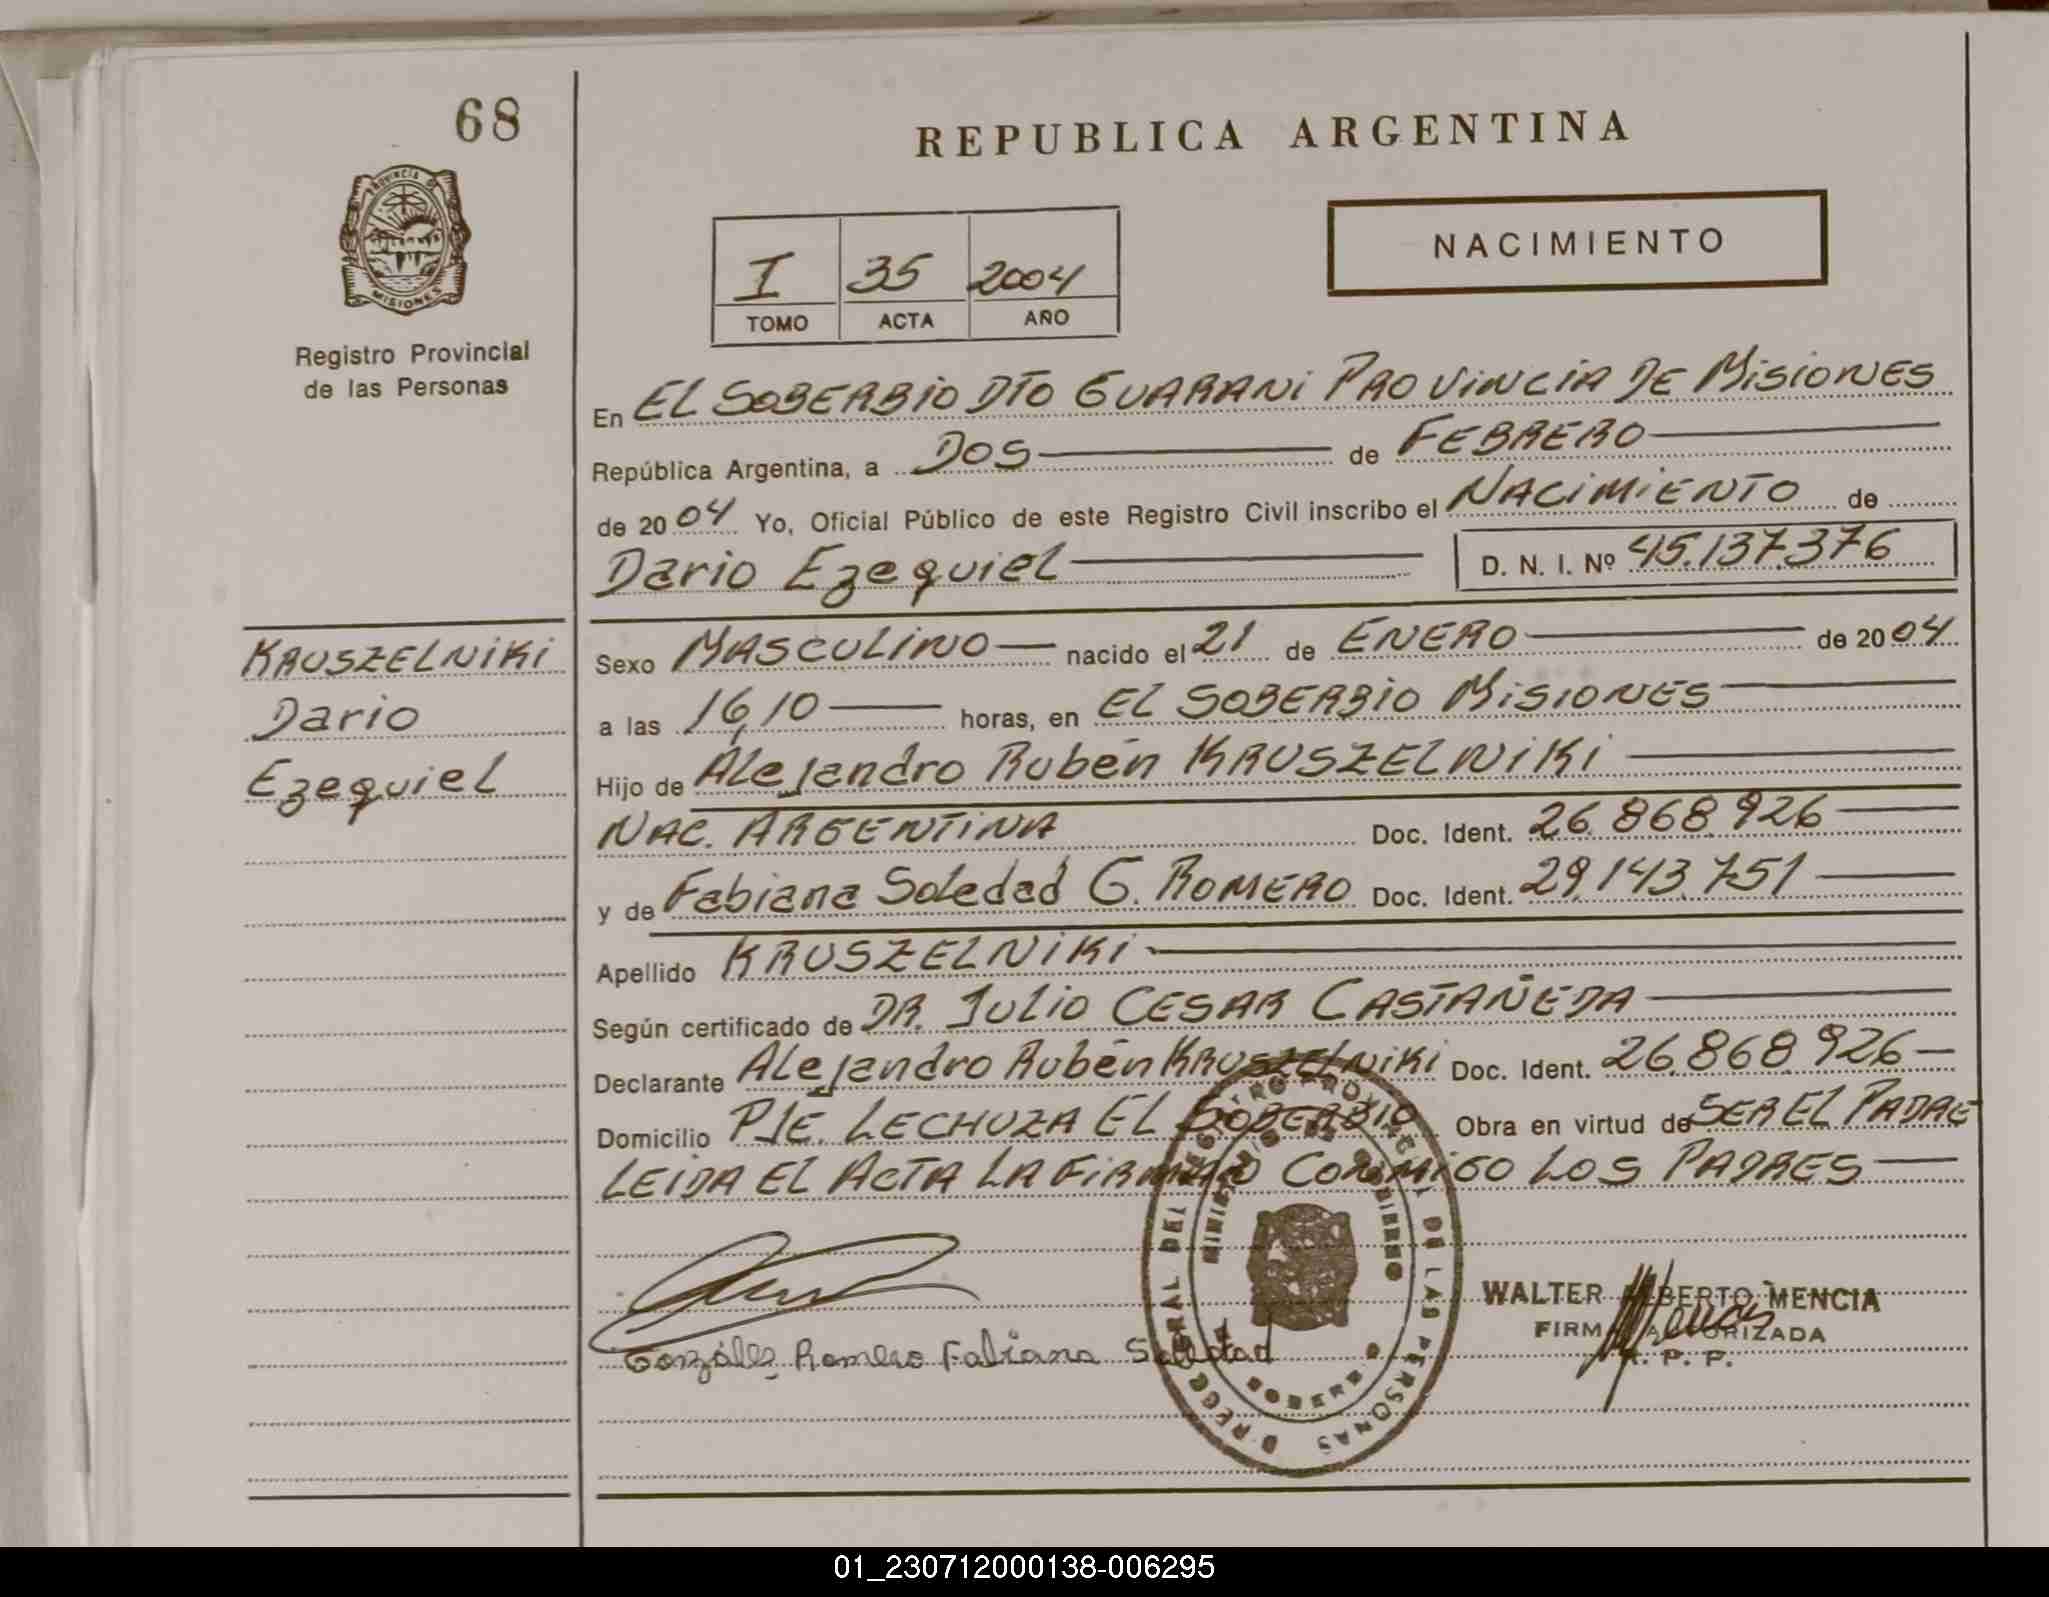 68
REPUBLICA ARGENTINA
PROVINCIA DE
MISIONES
Registro Provincial
de las Personas
NACIMIENTO
I 35 2004
TOMO ACTA AÑO
En EL SOBERBIO DTO GUARANI PROVINCIA DE MISIONES
República Argentina, a DOS de FEBRERO
de 2004 Yo, Oficial Público de este Registro Civil inscribo el NACIMIENTO de
Dario Ezequiel D. N. I. Nº 45.137.376
KRUSZELNIKI
Dario
Ezequiel
Sexo MASCULINO nacido el 21 de ENERO de 2004
a las 16,10 horas, en EL SOBERBIO MISIONES
Hijo de Alejandro Rubén KRUSZELNIKI
NAC. ARGENTINA Doc. Ident. 26.868.926
y de Fabiana Soledad G. ROMERO Doc. Ident. 29.143.751
Apellido KRUSZELNIKI
Según certificado de DR. JULIO CESAR CASTAÑEDA
Declarante Alejandro Rubén KRUSZELNIKI Doc. Ident. 26.868.926
Domicilio PJE. LECHUZA EL SOBERBIO Obra en virtud de SER EL PADRE
LEIDA EL ACTA LA FIRMAN CONMIGO LOS PADRES
WALTER ALBERTO MENCIA
FIRMA AUTORIZADA
R. P. P.
Gonzáles Romero Fabiana Soledad
DE LAS PERSONAS
01_230712000138-006295